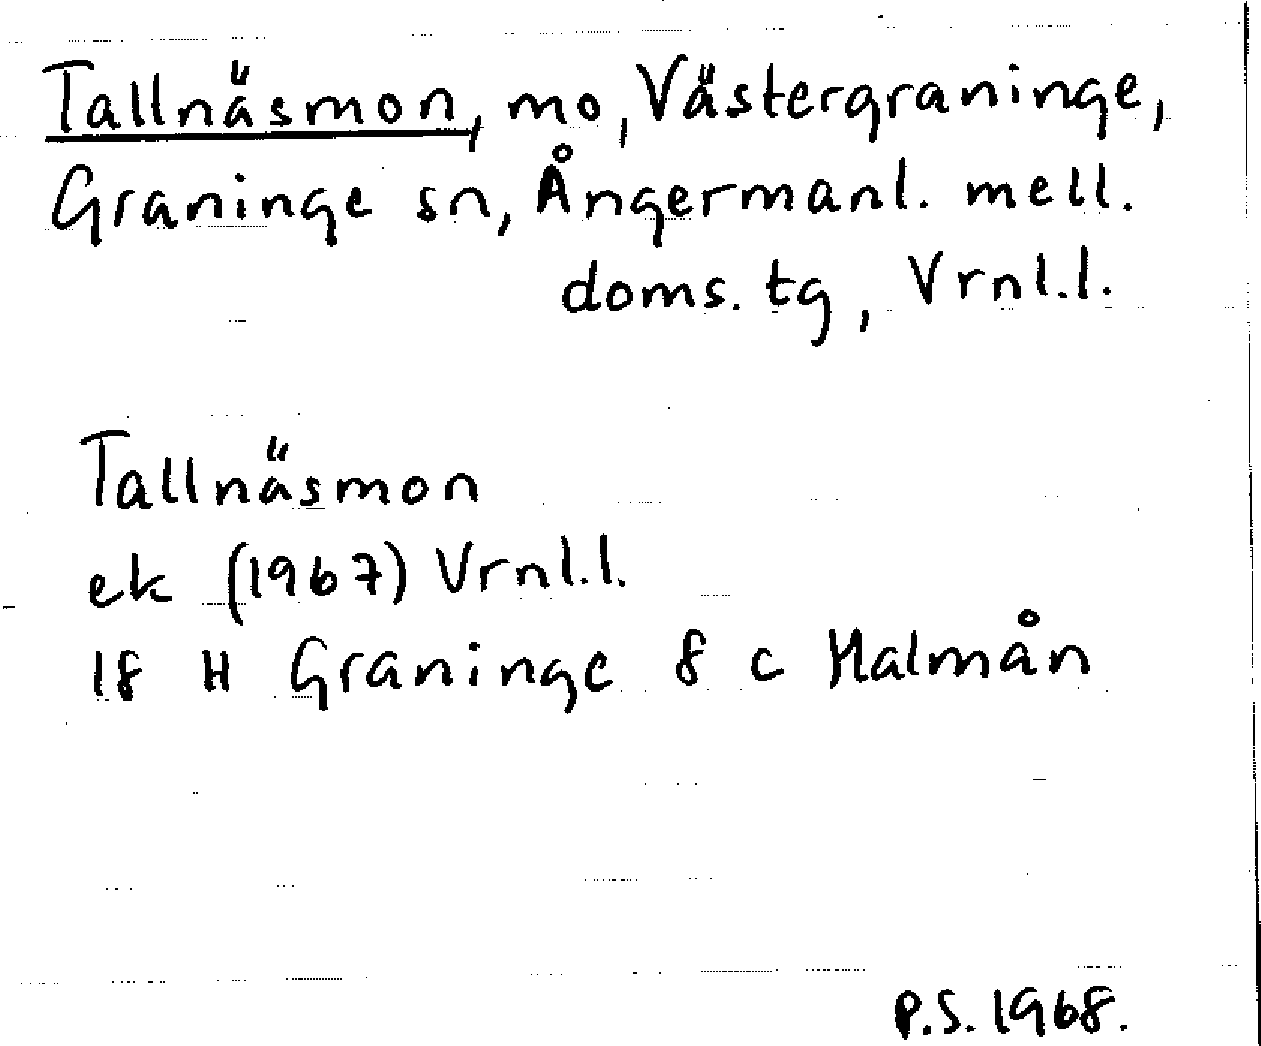 Tallnäsmon, mo, Västergraninge,
Graninge sn, Ångermanl. mell.
doms. tg, Vrnl.l.
Tallnäsmon
ek (1967) Vrnl.l.
18 H Graninge 8 c Malmån
P.S. 1968.